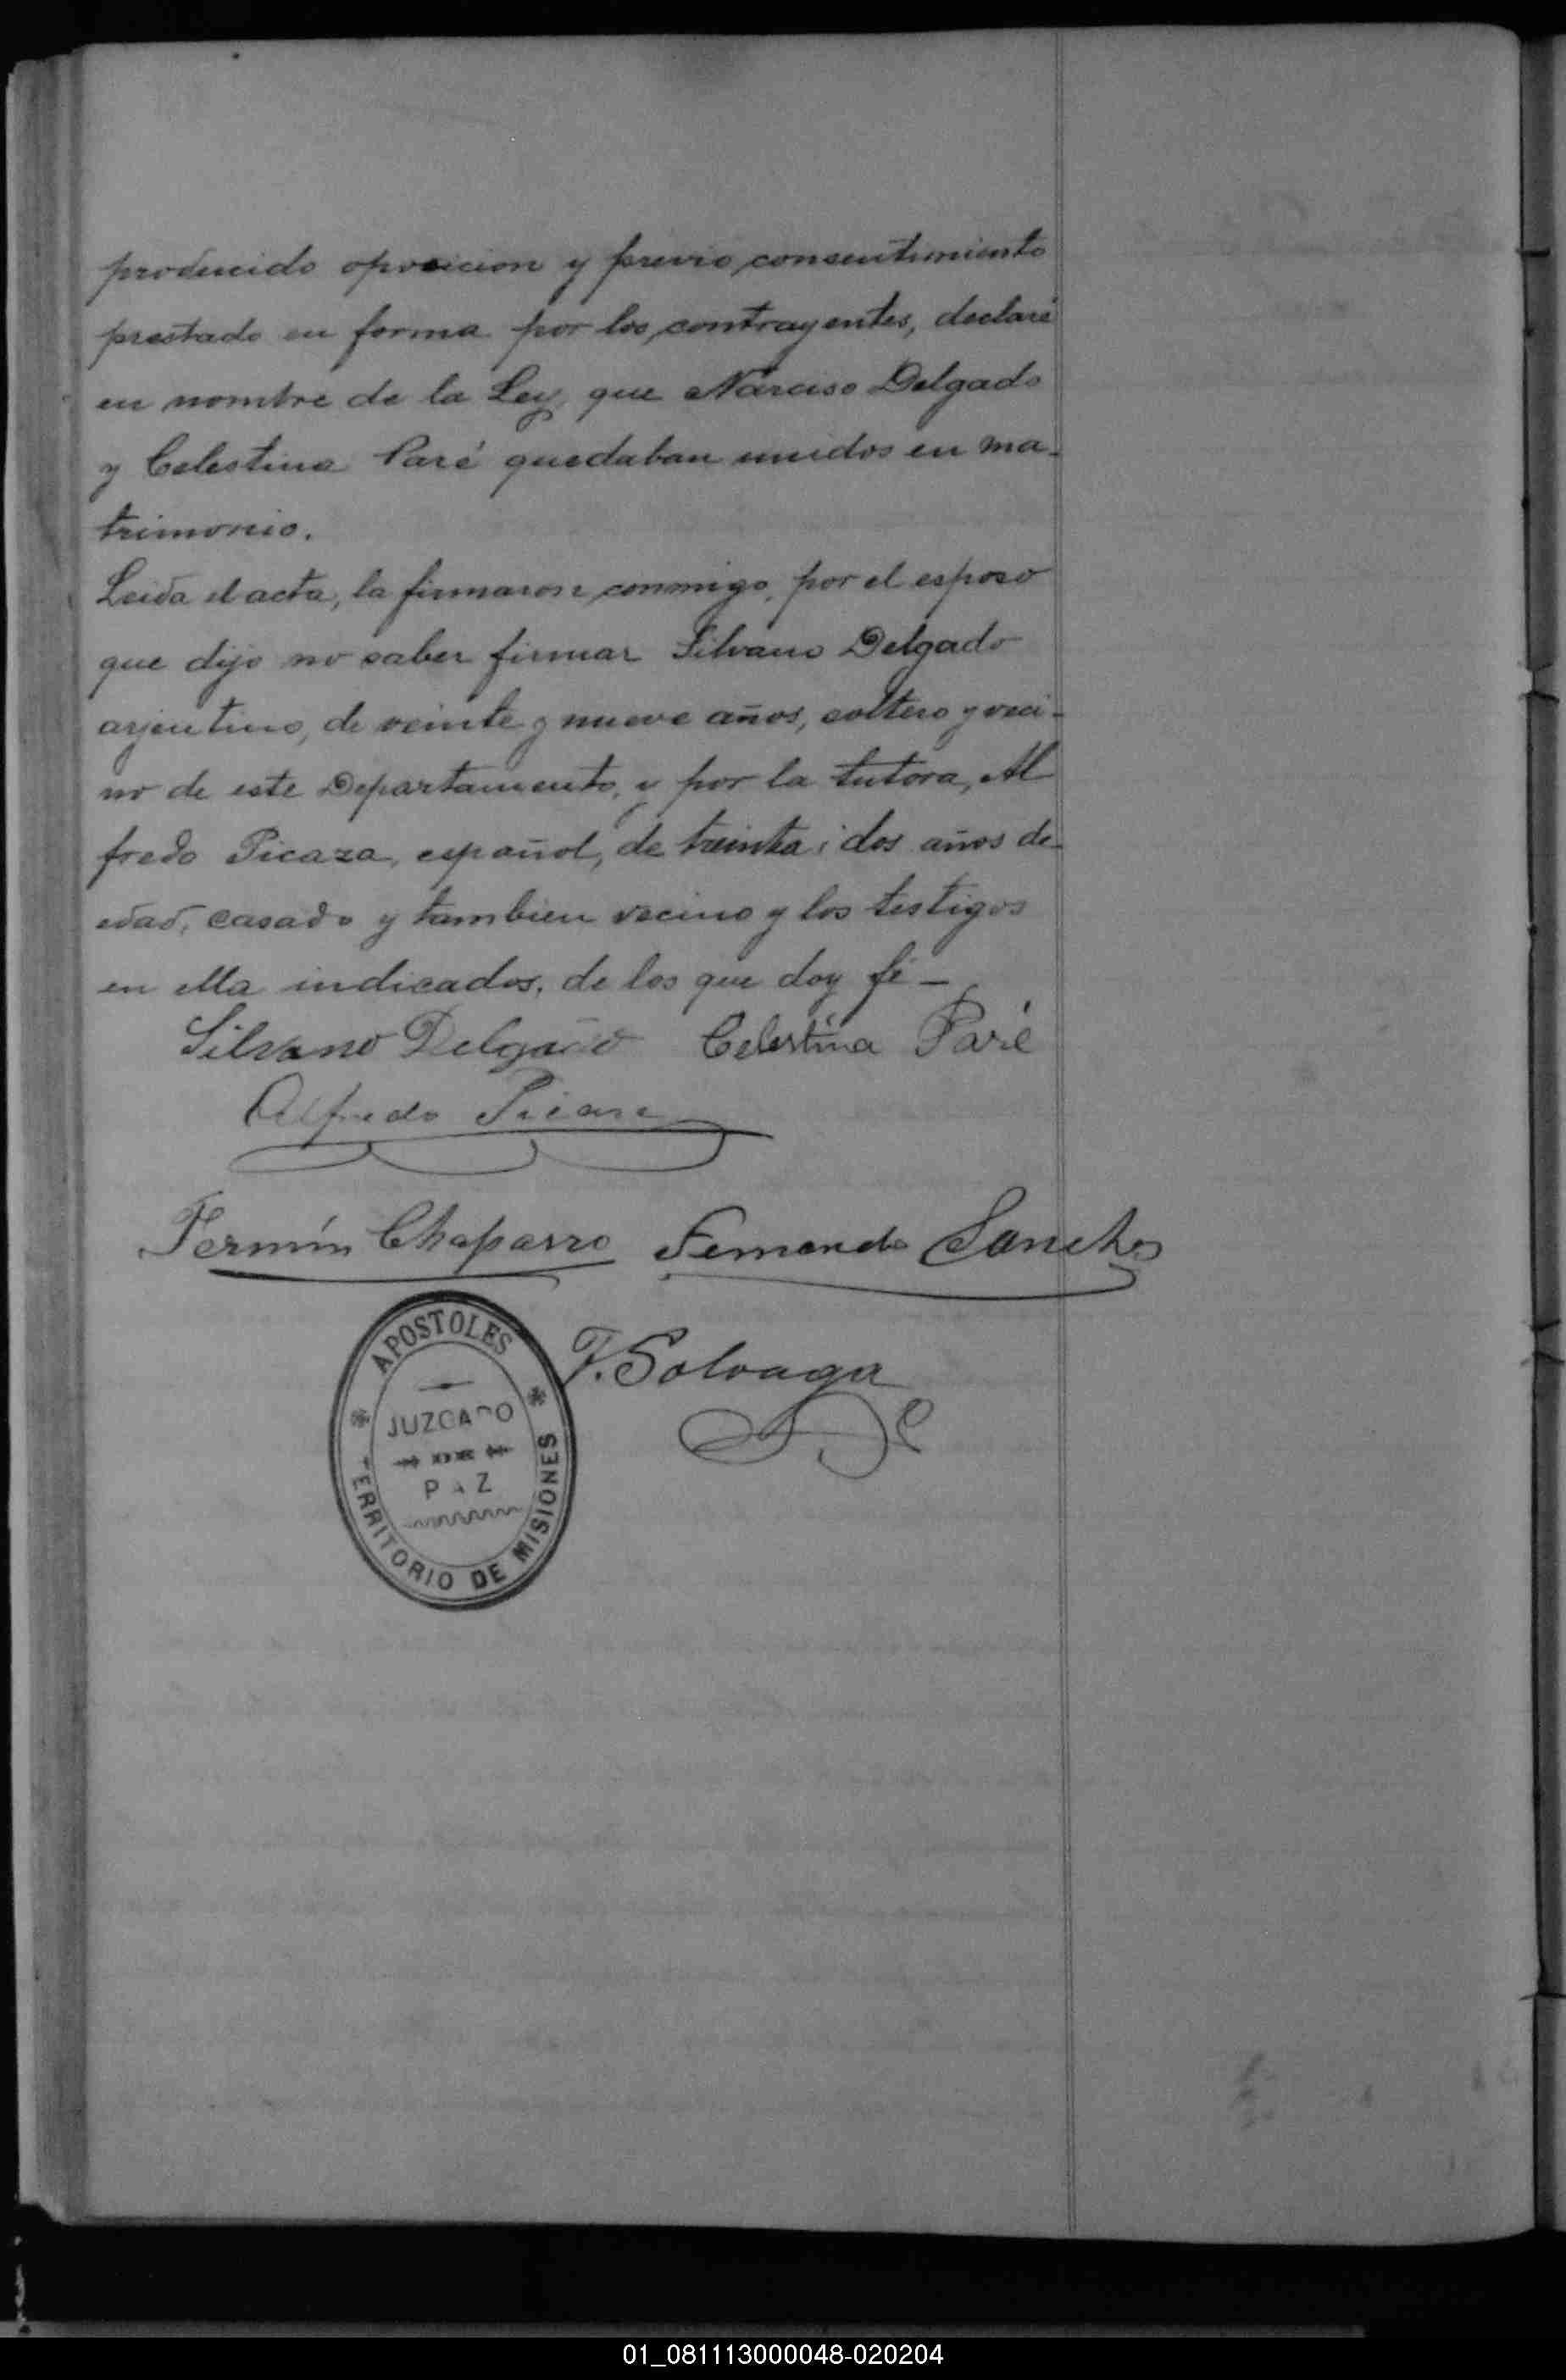 producido oposicion y previo consentimiento
prestado en forma por los contrayentes, declaré
en nombre de la Ley, que Narciso Delgado
y Celestina Paré quedaban unidos en ma-
trimonio.
Leida el acta, la firmaron conmigo, por el esposo
que dijo no saber firmar Silvano Delgado
arjentino, de veinte y nueve años, soltero y veci-
no de este Departamento, y por la tutora, Al
fredo Picaza, español, de treinta i dos años de
edad, casado y tambien vecino y los testigos
en ella indicados, de los que doy fé —
Silvano Delgado Celestina Paré
Alfredo Picaza
Fermín Chaparro Fernando Sanchez
APOSTOLES
JUZGADO
DE
PAZ
TERRITORIO DE MISIONES
F. Solvaga
01_081113000048-020204